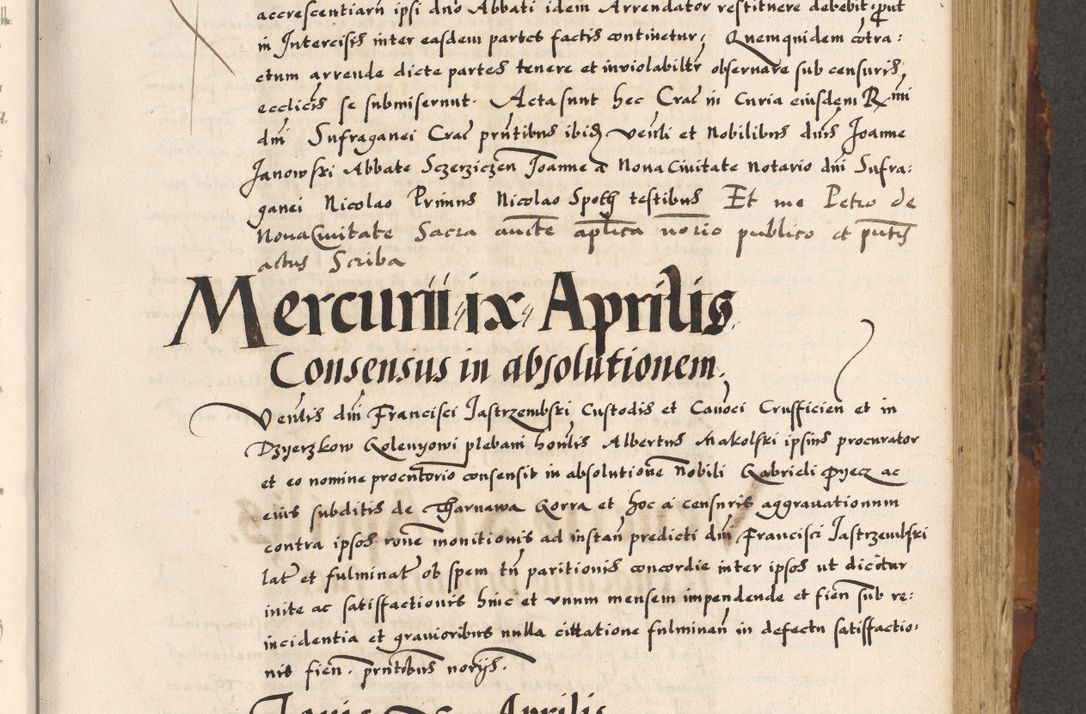 accrescentiarũ ipsi dño Abbati idem Arrendator restituere debebit put
in Intercisis inter easdem partes factis continetur, Quemquidem cõtra:
ctum arrende dicte partes tenere et inviolabiltr observare sub censuris
ecclicis se submiserunt. Acta sunt hec Crac in Curia eiusdem Rmi
dni Sufraganei Crac pñtibus ibidẽ Venli et Nobilibus dnis Joanne
Janowski Abbate Sczerziczeñ Joanne a Nova Civitate notario dni Sufra:
ganei Nicolao Primus Nicolao Spoth testibus Et me Petro de
Nova Civitate Sacra aucte aplica norio publico et pntis
actus Scriba
Mercurii ix Aprilis
Consensus in absolutionem.
Venlis dni Francisci Jastrzembski Custodis et Canoci Crusficieñ et in
Dzyerzkow Golenyowi plebani honlis Albertus Makolski ipsius procurator
et eo nomine procutorio consensit in absolutione Nobili Gabrieli Pyecz ac
eius subditis de Tharnawa Gorra et hoc a censuris aggravationum
contra ipsos rone monitionis ad instañ predicti dni Francisci Jastrzembski
lat et fulminat ob spem tñ paritionis concordie inter ipsos ut dicitur
inite ac satisfactionis hinc et unum mensem impendende et fieñ sub re:
incidentia et gravioribus nulla cittatione fulminañ in defectu satisfactio:
nis fieñ. pntibus norijs.
Jovis x Aprilis